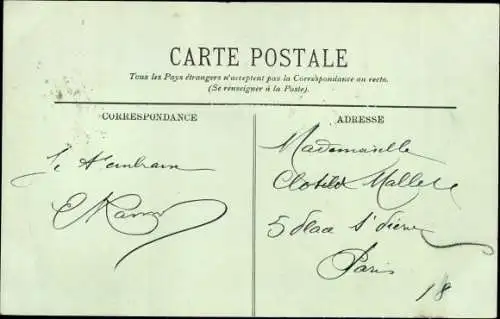 CARTE POSTALE
Tous les Pays étrangers n'acceptent pas la Correspondance au recto.
(Se renseigner à la Poste).
CORRESPONDANCE
ADRESSE
Je
Mademoiselle
Clotilde Mallet
5 Place St
Paris
18